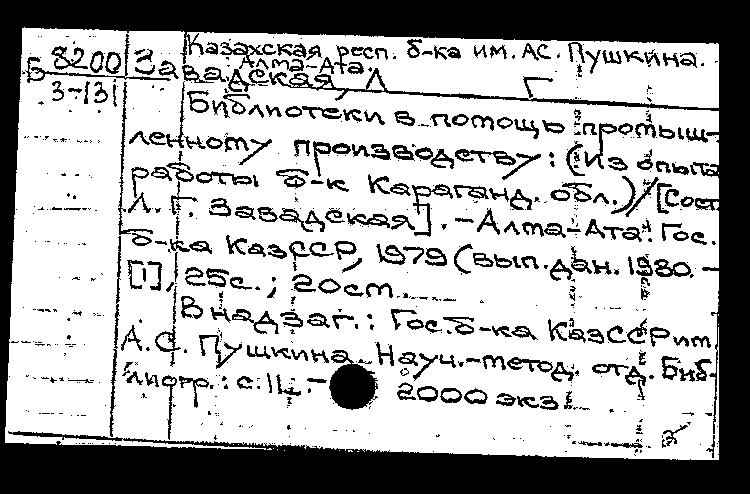 Казахская респ. б-ка им. А.С. Пушкина.
Алма-Ата
Б 8200
3-131
Завадская, Л Г
Библиотеки в помощь промыш-
ленному производству: (Из опыта
работы б-к Караганд. обл.)/[Сост.
Л. Г. Завадская]. -Алма-Ата: Гос.
б-ка КазССР, 1979 (вып. дан. 1980. -
[1], 25с.; 20см.
В надзаг.: Гос. б-ка КазССР им.
А.С. Пушкина. Науч.-метод. отд. Биб-
лиогр.: с. 11. - 2000 экз.